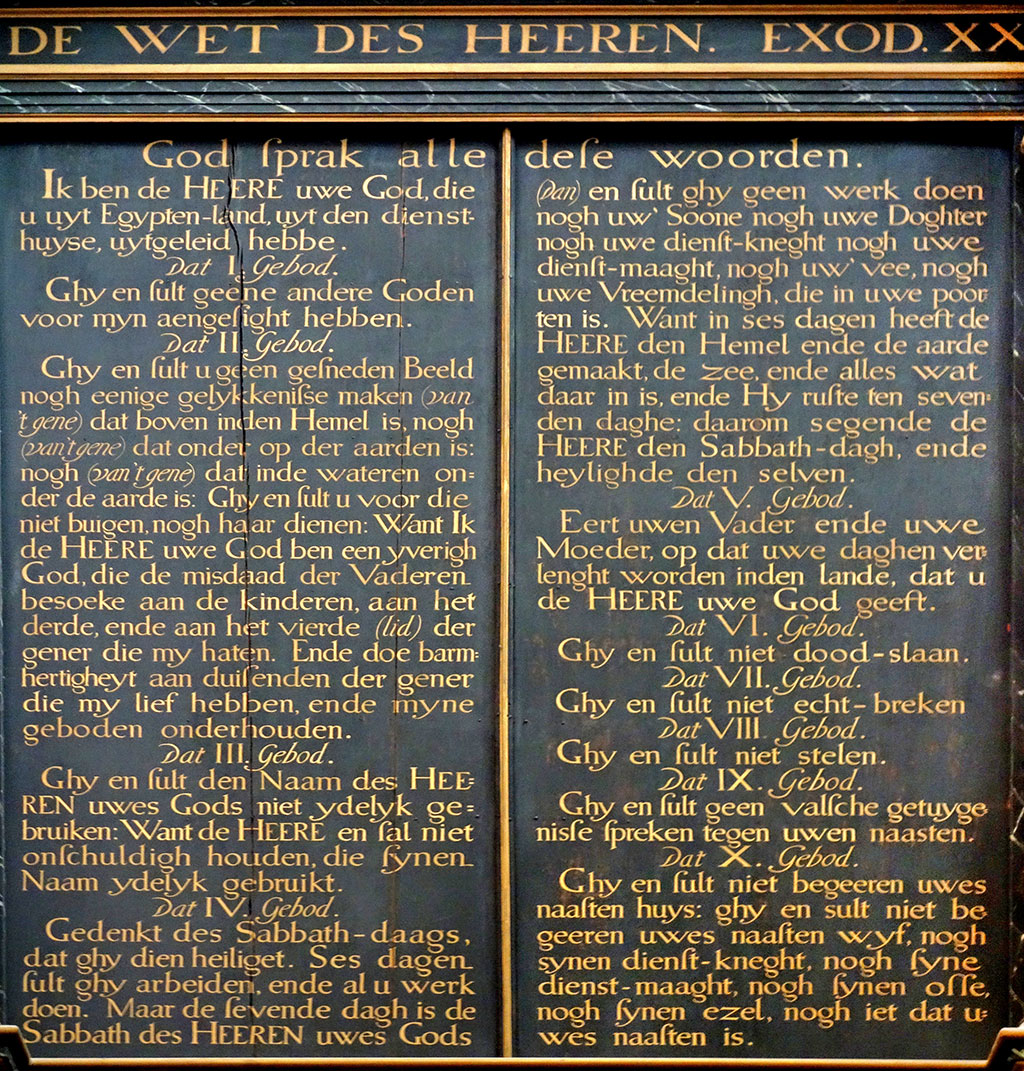 DE WET DES HEEREN. EXOD. XX
God ſprak alle deſe woorden.
Ik ben de HEERE uwe God, die
u uyt Egypten-land, uyt den dienst-
huyse, uytgeleid hebbe.
Dat I. Gebod.
Ghy en ſult geene andere Goden
voor myn aengeſight hebben.
Dat II. Gebod.
Ghy en ſult u geen geſneden Beeld
nogh eenige gelykkeniſse maken (van
't gene) dat boven inden Hemel is, nogh
(van't gene) dat onder op der aarden is:
nogh (van't gene) dat inde wateren on=
der de aarde is: Ghy en ſult u voor die
niet buigen, nogh haar dienen: Want Ik
de HEERE uwe God ben een yverigh
God, die de misdaad der Vaderen
besoeke aan de kinderen, aan het
derde, ende aan het vierde (lid) der
gener die my haten. Ende doe barm=
hertigheyt aan duiſenden der gener
die my lief hebben, ende myne
geboden onderhouden.
Dat III. Gebod.
Ghy en ſult den Naam des HEE=
REN uwes Gods niet ydelyk ge=
bruiken: Want de HEERE en ſal niet
onſchuldigh houden, die ſynen
Naam ydelyk gebruikt.
Dat IV. Gebod.
Gedenkt des Sabbath-daags,
dat ghy dien heiliget. Ses dagen
ſult ghy arbeiden, ende al u werk
doen. Maar de ſevende dagh is de
Sabbath des HEEREN uwes Gods
(dan) en ſult ghy geen werk doen
nogh uw' Soone nogh uwe Doghter
nogh uwe dienſt-kneght nogh uwe
dienſt-maaght, nogh uw' vee, nogh
uwe Vreemdelingh, die in uwe poor
ten is. Want in ses dagen heeft de
HEERE den Hemel ende de aarde
gemaakt, de zee, ende alles wat
daar in is, ende Hy ruſte ten seven=
den daghe: daarom segende de
HEERE den Sabbath-dagh, ende
heylighde den selven.
Dat V. Gebod.
Eert uwen Vader ende uwe
Moeder, op dat uwe daghen ver=
lenght worden inden lande, dat u
de HEERE uwe God geeft.
Dat VI. Gebod.
Ghy en ſult niet dood-slaan.
Dat VII. Gebod.
Ghy en ſult niet echt-breken
Dat VIII. Gebod.
Ghy en ſult niet stelen.
Dat IX. Gebod.
Ghy en ſult geen valſche getuyge=
niſse ſpreken tegen uwen naaſten.
Dat X. Gebod.
Ghy en ſult niet begeeren uwes
naaſten huys: ghy en sult niet be=
geeren uwes naaſten wyf, nogh
synen dienſt-kneght, nogh ſyne
dienst-maaght, nogh ſynen oſſe,
nogh ſynen ezel, nogh iet dat u=
wes naaſten is.